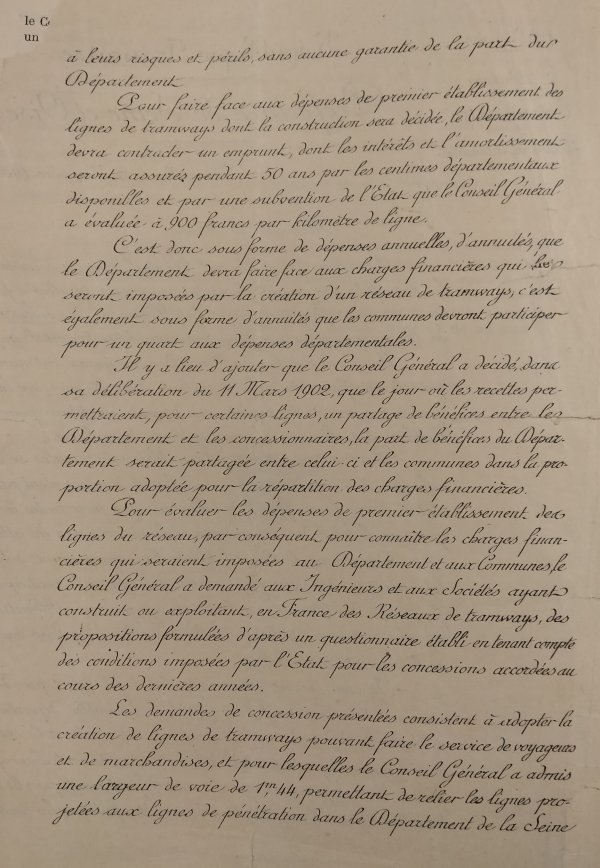 le
un
à leurs risques et périls, sans aucune garantie de la part du
Département
Pour faire face aux dépenses de premier établissement des
lignes de tramways dont la construction sera décidée, le Département
devra contracter un emprunt, dont les intérêts et l'amortissement
seront assurés pendant 50 ans par les centimes départementaux
disponibles et par une subvention de l'Etat que le Conseil Général
a évaluée à 900 francs par kilomètre de ligne.
C'est donc sous forme de dépenses annuelles, d'annuités, que
le Département devra faire face aux charges financières qui lui
seront imposées par la création d'un réseau de tramways, c'est
également sous forme d'annuités que les communes devront participer
pour un quart aux dépenses départementales.
Il y a lieu d'ajouter que le Conseil Général a décidé, dans
sa délibération du 11 Mars 1902, que le jour où les recettes per-
mettraient, pour certaines lignes, un partage de bénéfices entre le
Département et les concessionnaires, la part de bénéfices du Dépar-
tement serait partagée entre celui-ci et les communes dans la pro-
portion adoptée pour la répartition des charges financières.
Pour évaluer les dépenses de premier établissement des
lignes du réseau, par conséquent pour connaître les charges finan-
cières qui seraient imposées au Département et aux Communes, le
Conseil Général a demandé aux Ingénieurs et aux Sociétés ayant
construit ou exploitant, en France des Réseaux de tramways, des
propositions formulées d'après un questionnaire établi en tenant compte
des conditions imposées par l'Etat pour les concessions accordées au
cours des dernières années.
Les demandes de concession présentées consistent à adopter la
création de lignes de tramways pouvant faire le service de voyageurs
et de marchandises, et pour lesquelles le Conseil Général a admis
une largeur de voie de 1m44, permettant de relier les lignes pro-
jetées aux lignes de pénétration dans le Département de la Seine